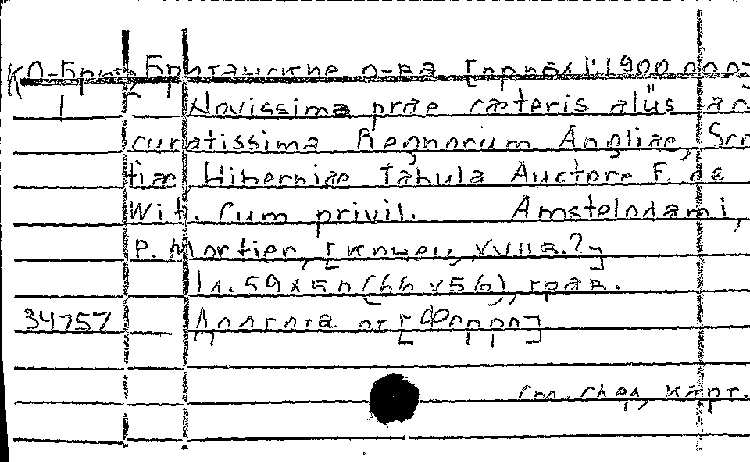 КО-Брит Британские о-ва [прибл. 1:1900 000]
1 Novissima prae caeteris aliis ac
curatissima Regnorum Angliae, Sco
tiae Hiberniae Tabula Auctore F. de
Wit. Cum privil. Amstelodami,
P. Mortier, [конец XVII в.?]
1 л. 59x50 (66x56), грав.
34757 Долгота от [Ферро]
См. след. карт.